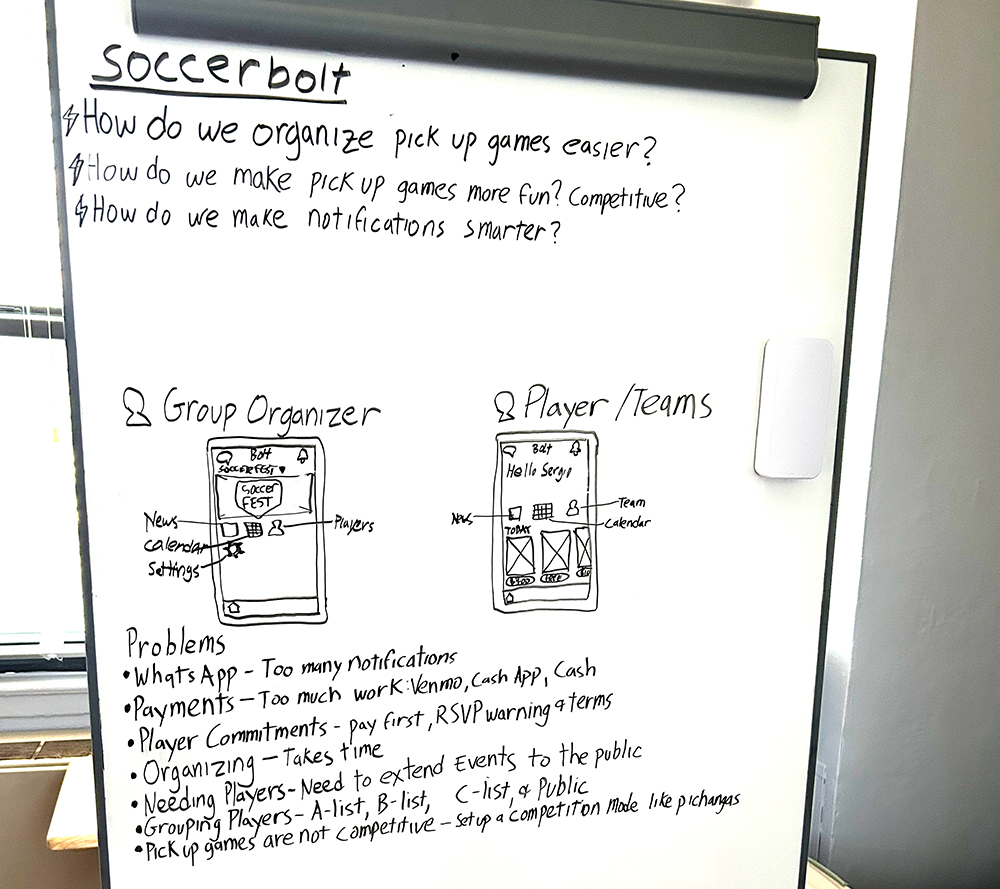 soccerbolt
How do we organize pick up games easier?
How do we make pick up games more fun? Competitive?
How do we make notifications smarter?
Group Organizer
Bolt
SOCCERFEST
SOCCER
FEST
News
Calendar
Settings
Players
Player /Teams
Bolt
Hello Sergio
News
Team
Calendar
TODAY
FREE
Problems
• WhatsApp - Too many notifications
• Payments - Too much work: Venmo, Cash App, Cash
• Player Commitments - pay first, RSVP warning & terms
• Organizing - Takes time
• Needing Players - Need to extend Events to the public
• Grouping Players - A-list, B-list, C-list, & Public
• Pick up games are not competitive - Set up a competition mode like pichangas